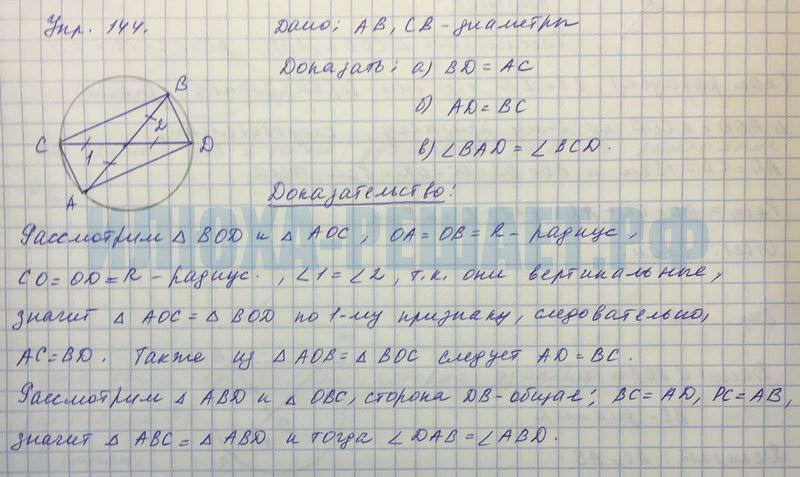 Упр. 144.
Дано: AB, CB - диаметры
Доказать: а) BD = AC
б) AD = BC
в) ∠BAD = ∠BCD.
B
C
D
A
1
2
Доказательство:
ИЛЮХА-РЕШАЕТ.РФ
Рассмотрим △ BOD и △ AOC, OA = OB = R - радиус,
CO = OD = R - радиус., ∠1 = ∠2, т.к. они вертикальные,
значит △ AOC = △ BOD по 1-му признаку, следовательно,
AC = BD. Также из △ AOB = △ BOC следует AD = BC.
Рассмотрим △ ABD и △ OBC, сторона DB - общая; BC = AD, PC = AB,
значит △ ABC = △ ABD и тогда ∠DAB = ∠ABD.